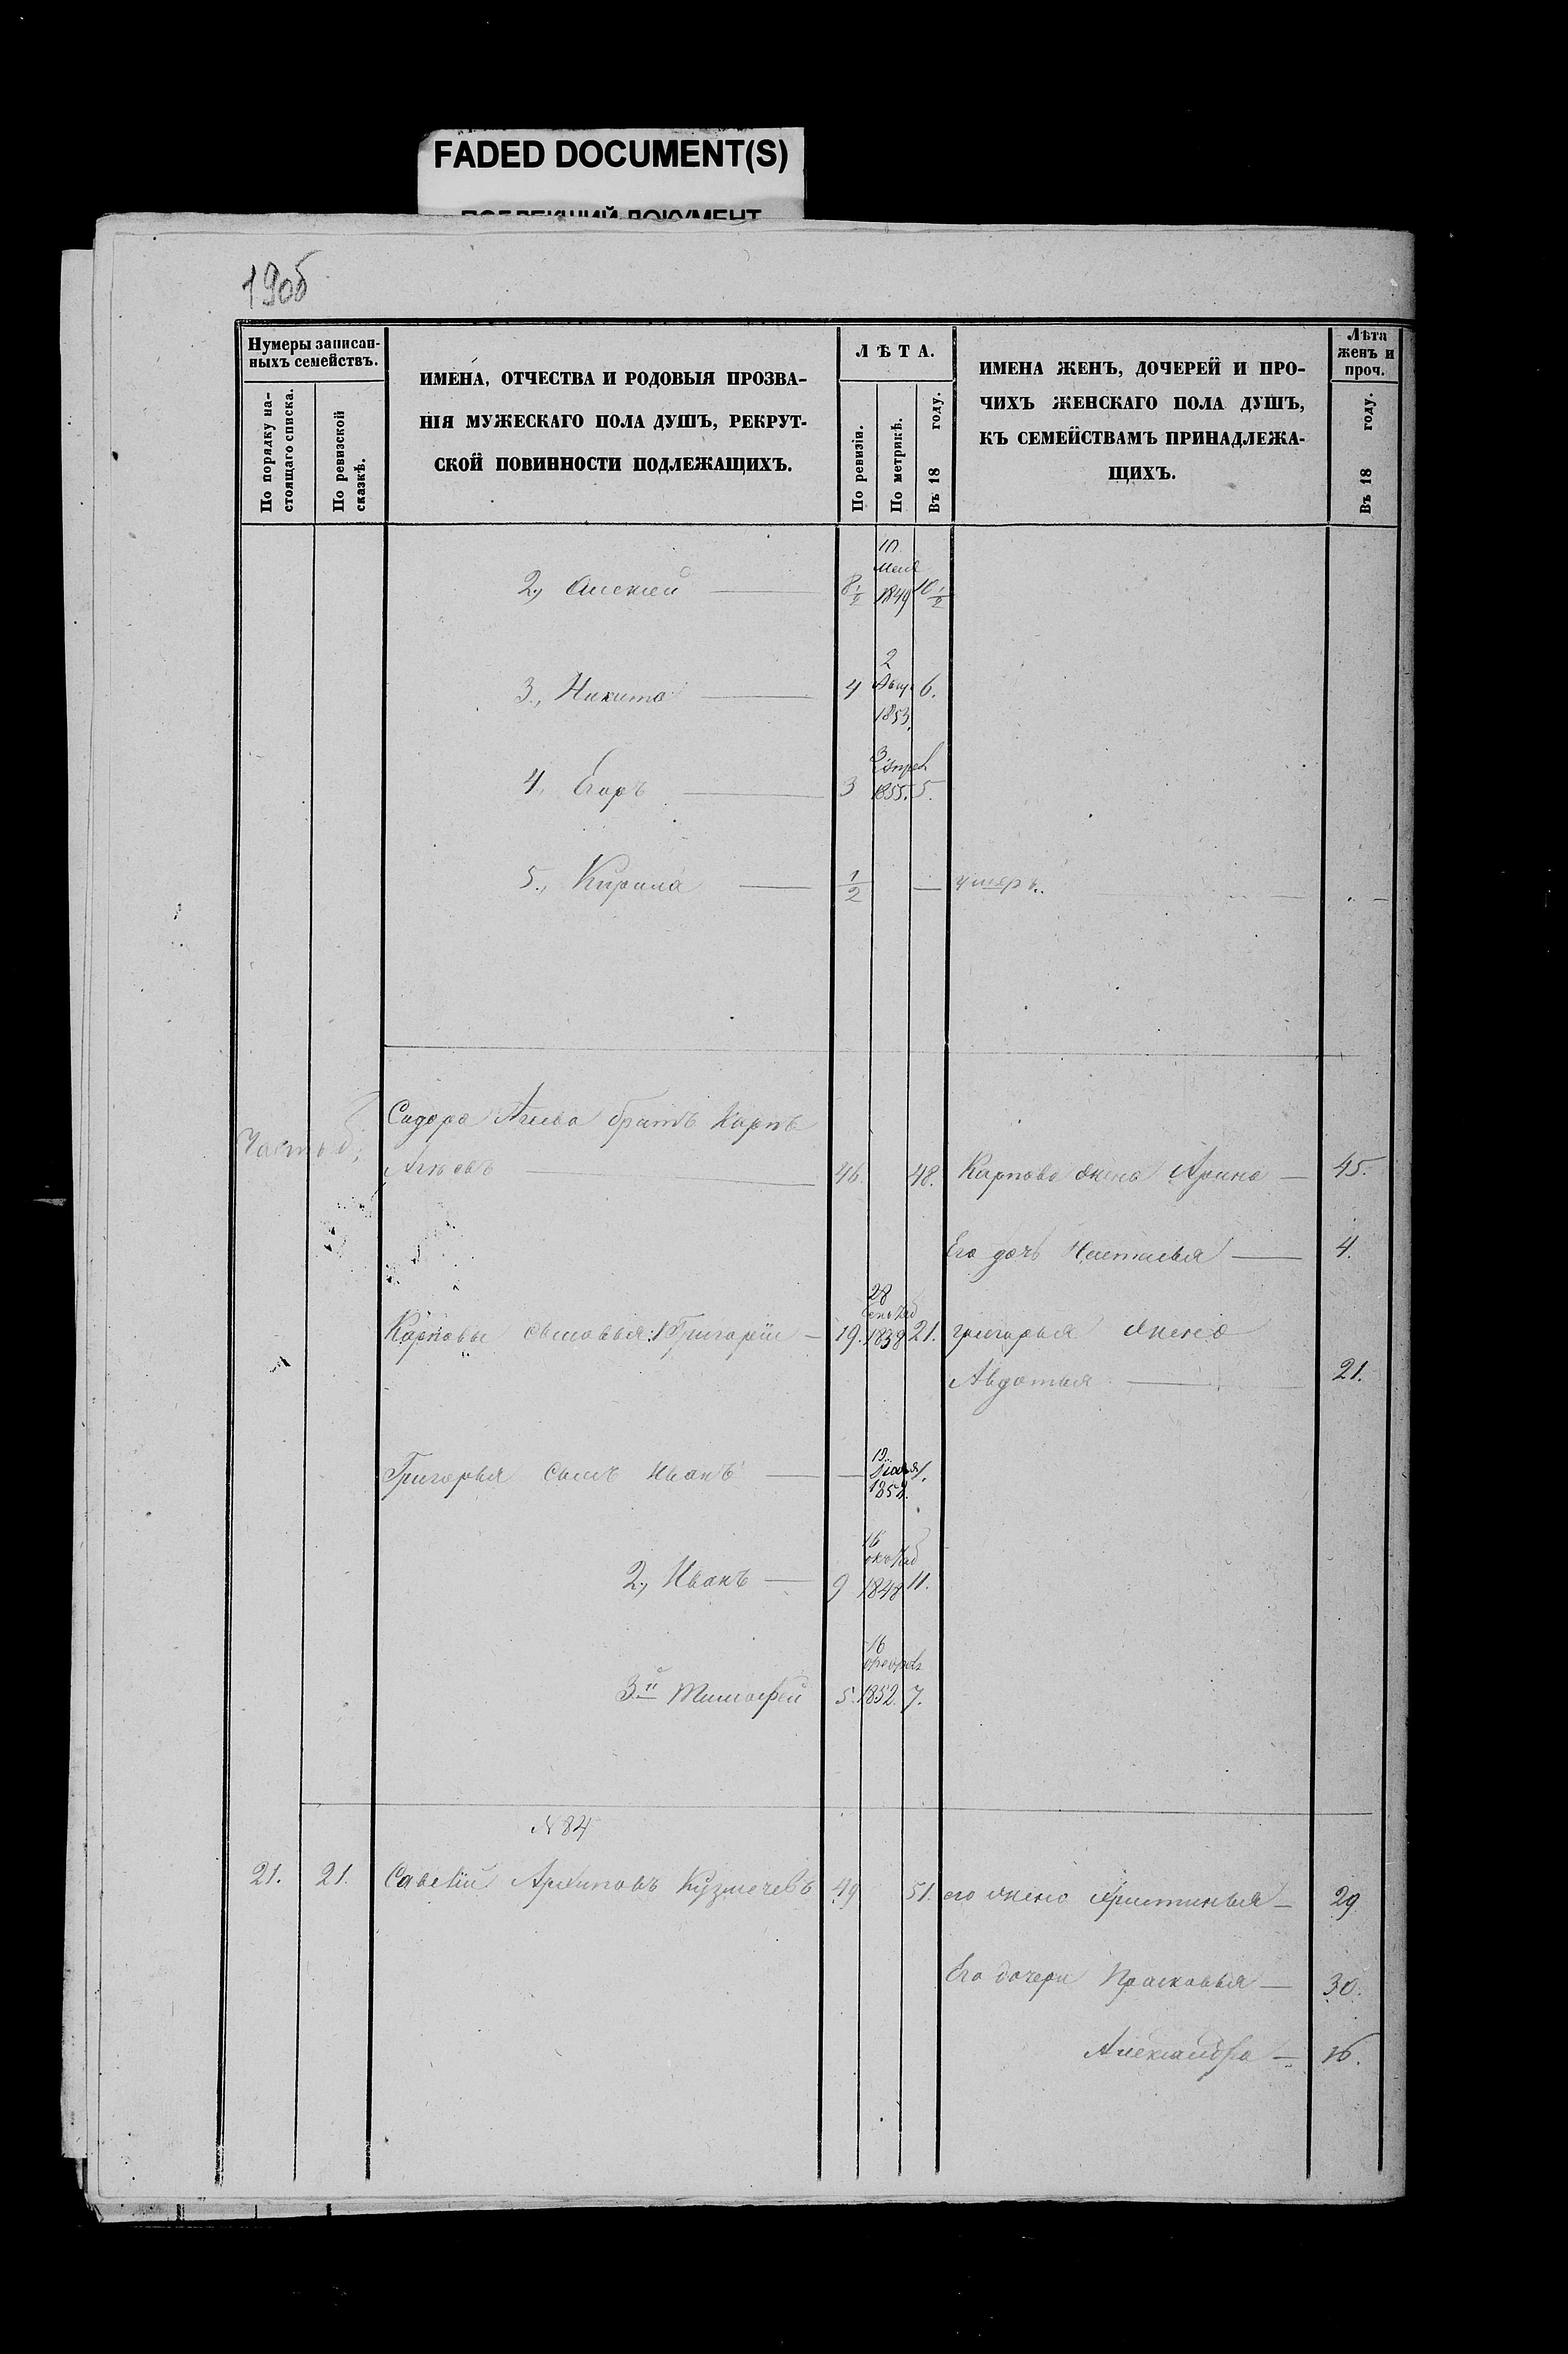 FADED DOCUMENT(S)
190б
Нумеры записан-
ныхъ семействъ.
По порядку на-
стоящаго списка.
По ревизской
сказкѣ.
ИМЕНА, ОТЧЕСТВА И РОДОВЫЯ ПРОЗВА-
НІЯ МУЖЕСКАГО ПОЛА ДУШЪ, РЕКРУТ-
СКОЙ ПОВИННОСТИ ПОДЛЕЖАЩИХЪ.
ЛѢТА.
По ревизіи.
По метрикѣ.
Въ 18 году.
ИМЕНА ЖЕНЪ, ДОЧЕРЕЙ И ПРО-
ЧИХЪ ЖЕНСКАГО ПОЛА ДУШЪ,
КЪ СЕМЕЙСТВАМЪ ПРИНАДЛЕЖА-
ЩИХЪ.
Лѣта
женъ и
проч.
Въ 18 году.
2, Алексей — 8 1/2 1849 10 1/2
3, Никита — 4 2 Авгу 1853. 6.
4, Егоръ — 3 1855. 5.
5, Кирила — 1/2 — умеръ. —
Часть б;
Сидора Агиева братъ Карпъ
Агиевъ — 46. 48. Карпова жена Арина — 45.
Его дочь Наталья — 4.
Карповы сыновья: 1 Григорій — 19. 28 Сентяб 1838 21. Григорья жена
Авдотья — 21.
Григорья сынъ Иванъ — — 1.
2, Иванъ — 9 16 октяб 1848 11.
3й Тимофей 5. 16 февраль 1852. 7.
N 84
21. 21. Савелій Архиповъ Кузмичевъ 49 51. его жена Христинья — 29
Его дочери Прасковья — 30.
Александра — 16.